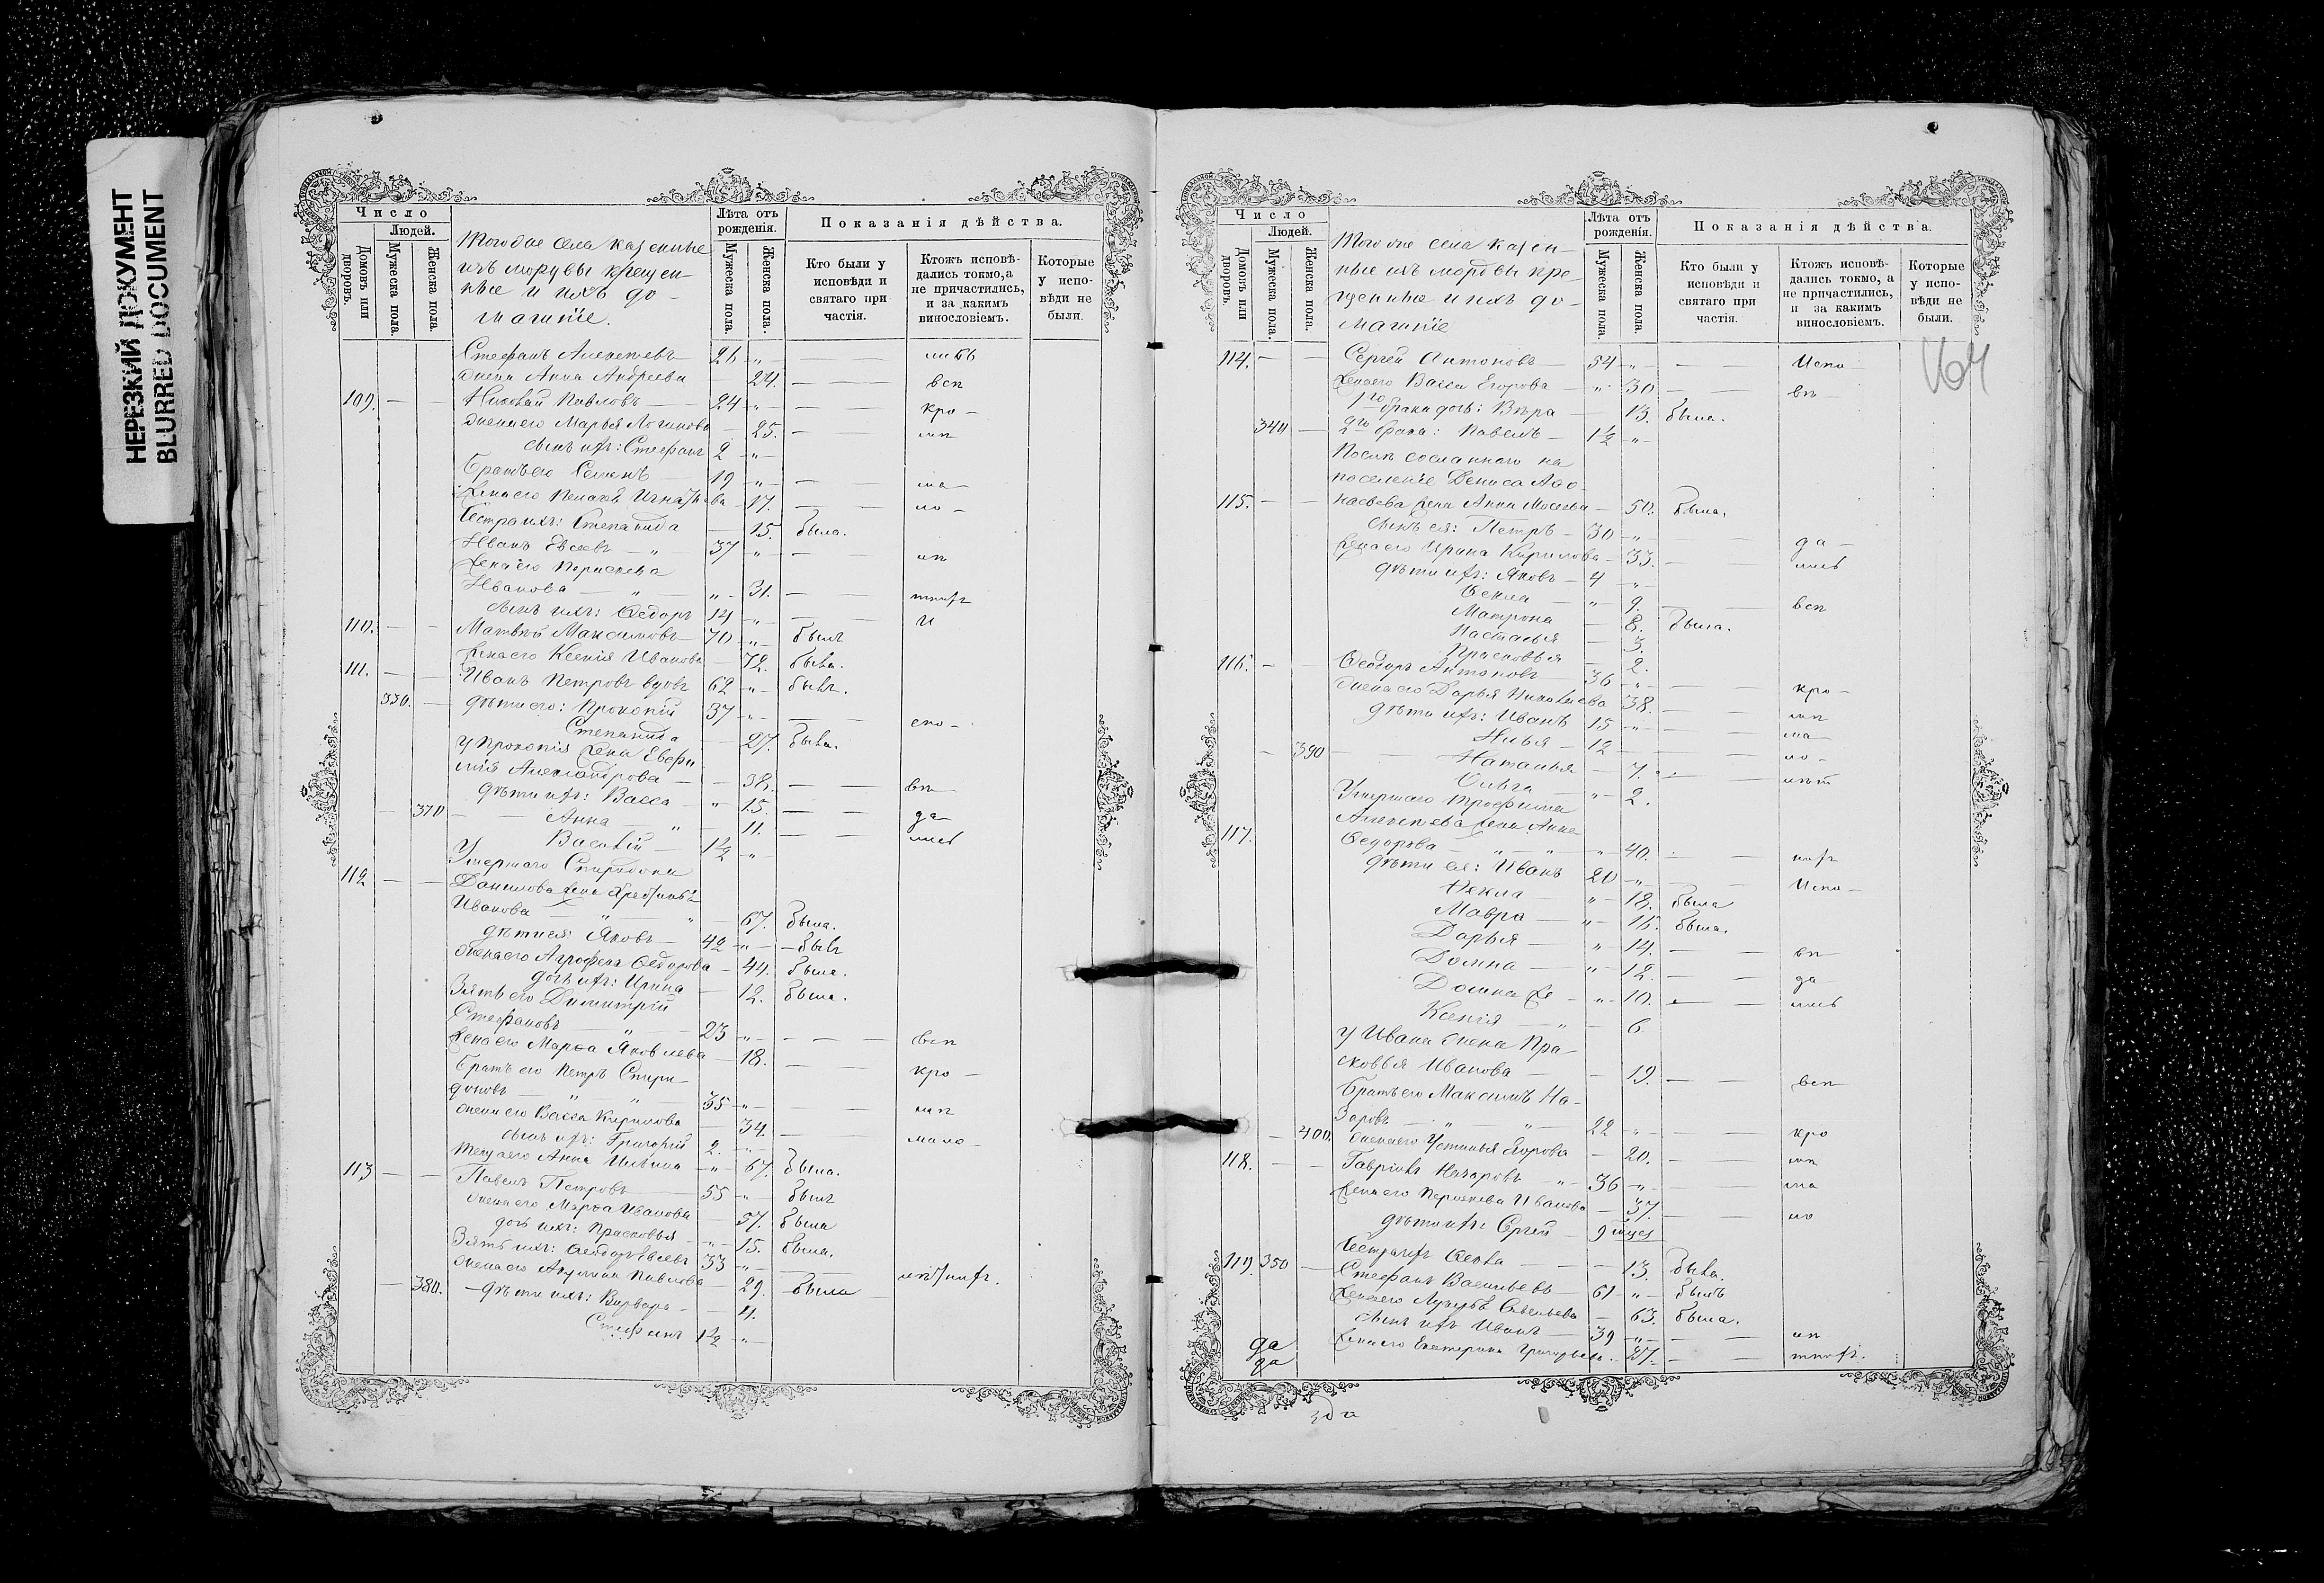 НЕРЕЗКИЙ ДОКУМЕНТ
BLURRED DOCUMENT
Число
Людей.
Домовъ или дворовъ.
Мужеска пола.
Женска пола.
Тогоже села казенные
изъ мордвы крещен-
ные и ихъ до-
машніе.
Лѣта отъ рожденія.
Мужеска пола.
Женска пола.
Показанія дѣйства.
Кто были у исповѣди и святаго при частія.
Ктожъ исповѣ-дались токмо, а не причастились, и за какимъ винословіемъ.
Которые у испо-вѣди не были.
Стефанъ Алексеевъ 26 —„—
жена Анна Андреева — 24. — — всп
109. — — Николай Павловъ — 24 —„— — — кро —
жена его Марья Логинова — 25. —
сынъ ихъ: Стефанъ 2 —„—
Братъ его Семенъ — 19 —„— —
жена его Пелагея Игнатьева — 17. — —
Сестра ихъ: Степанида — 15. была.
Иванъ Евсеевъ —„— 37 „— — —
жена его Парасковья
Иванова — „ — „— 31. — —
сынъ ихъ: Федоръ 14 —„— — —
110. — — Матвей Максимовъ — 70 —„— былъ
жена его Ксенія Иванова — 72. была.
111. — — Иванъ Петровъ вдовъ 62 —„— былъ.
330. — дѣти его: Прокопій 37 —„— — —
Степанида — 27. была.
у Прокопія жена Евфи
мія Александрова — — 38. — — вп
дѣти ихъ: Васса — „ — 15. — — да
370 — — Анна — „ — 11. — —
Василій — 1½ —„—
Умершаго Спиридона
112 — — Данилова жена Хретинья
Иванова — „ — „ — 67. была.
дѣти ея: Яковъ — 42 —„— — былъ
жена его Агрофена Федорова — 44. была.
дочь ихъ: Ирина — 12. была.
Зять его Димитрій
Стефановъ — „ — 23 —„— — — всп
жена его Марѳа Яковлева — 18. — — кро —
Братъ его Петръ Спири-
доновъ — „ — „ — 35 —„— — —
жена его Васса Кирилова — 34. — — мало —
сынъ ихъ: Григорій 2. —„—
теща его Анна Ильина —„— 67. была.
113 — — Павелъ Петровъ — 55 —„— былъ
жена его Марѳа Иванова — 57. была
дочь ихъ: Прасковья —„— 15. была.
Зять ихъ: Феодоръ Евсеевъ 33 —„—
жена его Акулина Павлова — 29. — была
— 380. — дѣти ихъ: Варвара — — 4.
Стефанъ 1½ —„—
Число
Людей.
Домовъ или дворовъ.
Мужеска пола.
Женска пола.
Тогоже села казен-
ные изъ мордвы кре
щенные и ихъ до-
машніе
Лѣта отъ рожденія.
Мужеска пола.
Женска пола.
Показанія дѣйства.
Кто были у исповѣди и святаго при частія.
Ктожъ исповѣ-дались токмо, а не причастились, и за какимъ винословіемъ.
Которые у испо-вѣди не были.
164
114. — — Сергей Антоновъ — 34 —„— — — Испо —
жена его Васса Егорова — „— 30 — — вп —
1го брака дочь: Вѣра — 13. была.
340 — 2го брака: Павелъ — 1½ —„—
После сосланнаго на
поселеніе Дениса Афо
115. — — насьева жена Анна — 50. была.
сынъ ея: Петръ — 30 —„— — — да —
жена его Ирина Кирилова — 33. — —
дѣти ихъ: Яковъ — 4 —„—
Фекла — „— 9. — — всп
Матрона — 8. была.
Насталья — 3.
Прасковья — 2.
116. — — Феодоръ Антоновъ — 36 —„— — — кро —
жена его Дарья Николаева 38. — —
дѣти ихъ: Иванъ 15 —„— — —
Илья — 12 — —
— 390 — Наталья — 7.
Ольга — „— 2.
Умершаго Трофима
Алексеева жена Анна
117. Федорова — „ — „ — „— 40. — —
дѣти ея: Иванъ 20 —„— — — Испо —
Фекла — „— 18. была
Мавра — „— 16. была.
Дарья — „— 14. — — вп
Домна — „— 12. — — да
Домна же — „— 10. — —
Ксенія — „ — 6
у Ивана жена Пра-
сковья Иванова — — 19. — — всп
Братъ его Максимъ На-
заровъ — „ — „ — 22 „— — — кро
— 400. жена его Устинья Егорова — 20. — —
118. — — Гавріилъ Назаровъ —„— 36 —„— — —
жена его Парасковья Иванова — 37. — —
дѣти ихъ: Сергей — 9 мцес
Сестра ихъ Фекла — — 13. была.
119. 350 — Стефанъ Васильевъ — 61 —„— былъ
жена его Лукерья Савельева — 63. была.
сынъ ихъ Иванъ — 39 —„— — —
жена его Екатерина Григорьева — 37. — —
да
да